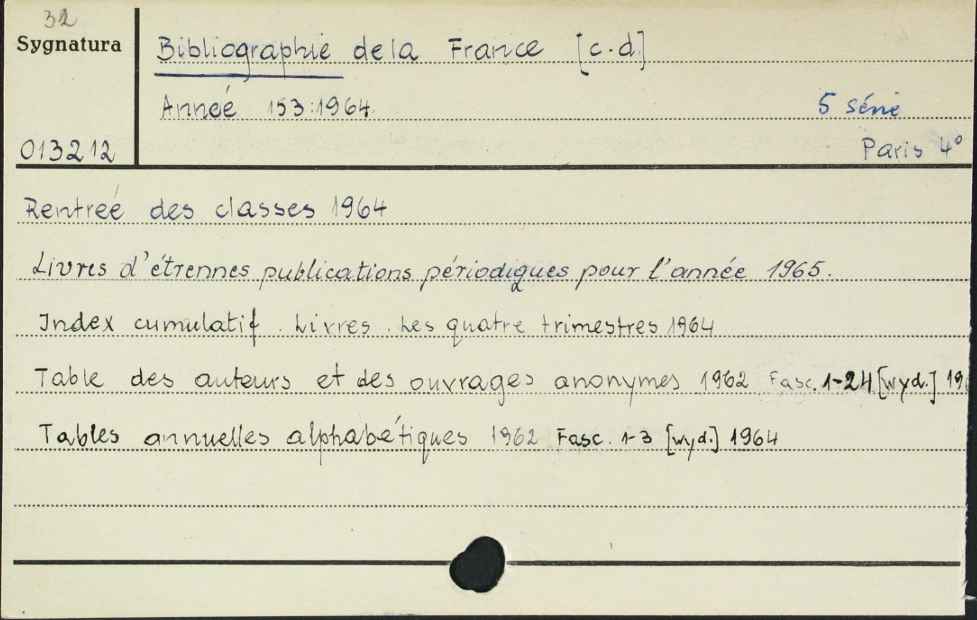 32
Sygnatura
Bibliographie de la France [c.d]
Anneé 153:1964.
5 série
013212
Paris 4°
Rentreé des classes 1964
Livres d'étrennes publications périodiques pour l'année 1965.
Index cumulatif. Livres. Les quatre trimestres 1964
Table des auteurs et des ouvrages anonymes 1962 Fasc. 1-24 [wyd.] 19
Tables annuelles alphabétiques 1962 Fasc. 1-3 [wyd.] 1964